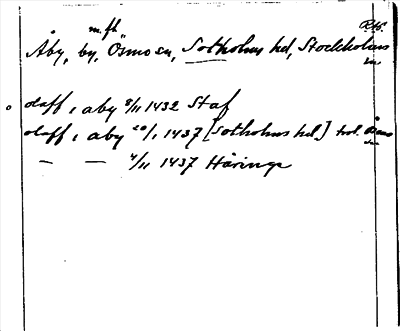 m. fl.
Åby, by, Ösmo sn, Sotholms hd, Stockholms
olaff i aby 8/11 1432 Staf
olaff i aby 20/1 1437 [Sotholms hd]
— — 4/11 1437 Häringe